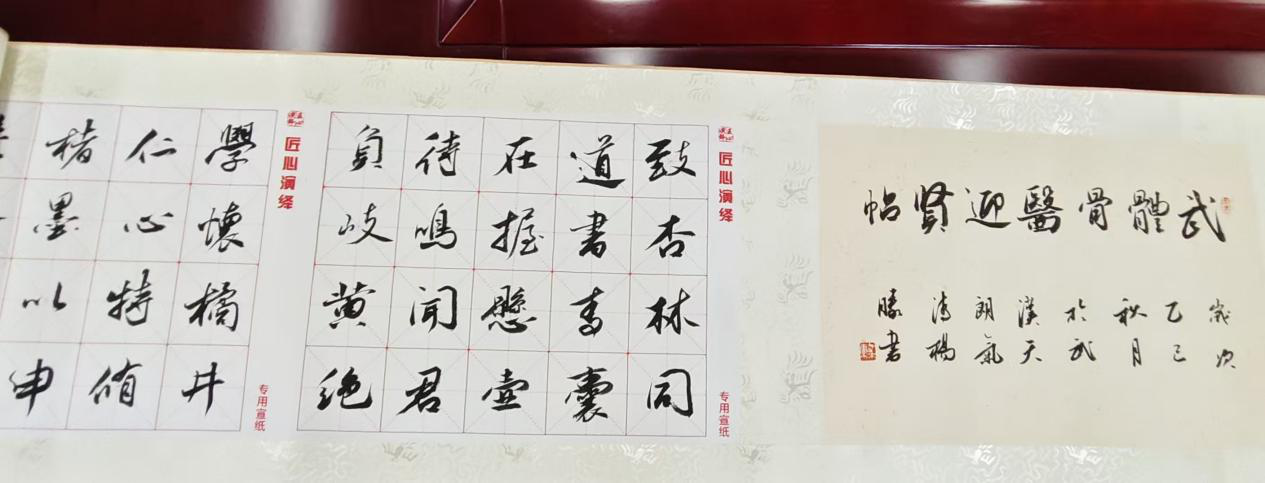 武體骨醫迎賢帖
歲次
乙巳
秋月
於武
漢天
朗氣
清楊
書
匠心演绎
专用宣纸
致杏林同
道書青囊
在握懸壺
待鳴聞君
負岐黄絶
匠心演绎
专用宣纸
學懷橘井
仁心特侑
楮墨以申